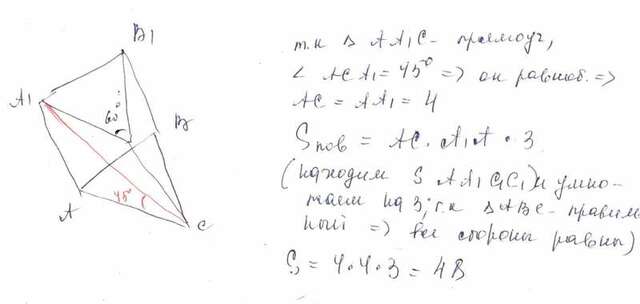 B1
A1
60°
B
A
45°
C
т.к Δ AA1C - прямоуг,
∠ ACA1 = 45° => он равноб. =>
AC = AA1 = 4
Sпов = AC · A1A · 3
(находим S AA1C1C) и умно-
жаем на 3; т.к Δ ABC - правиль
ный => все стороны равны)
S = 4·4·3 = 48